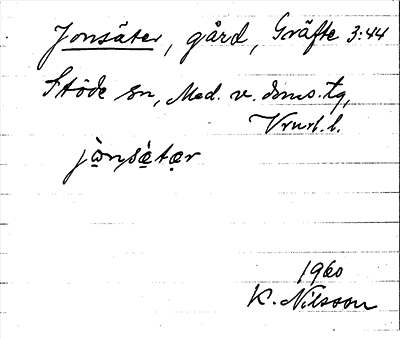 Jonsäter, gård, Gräfte 3:44
Stöde sn, Med. v. doms. tg,
Vnrl. l.
jònsä̀tər
1960
K. Nilsson